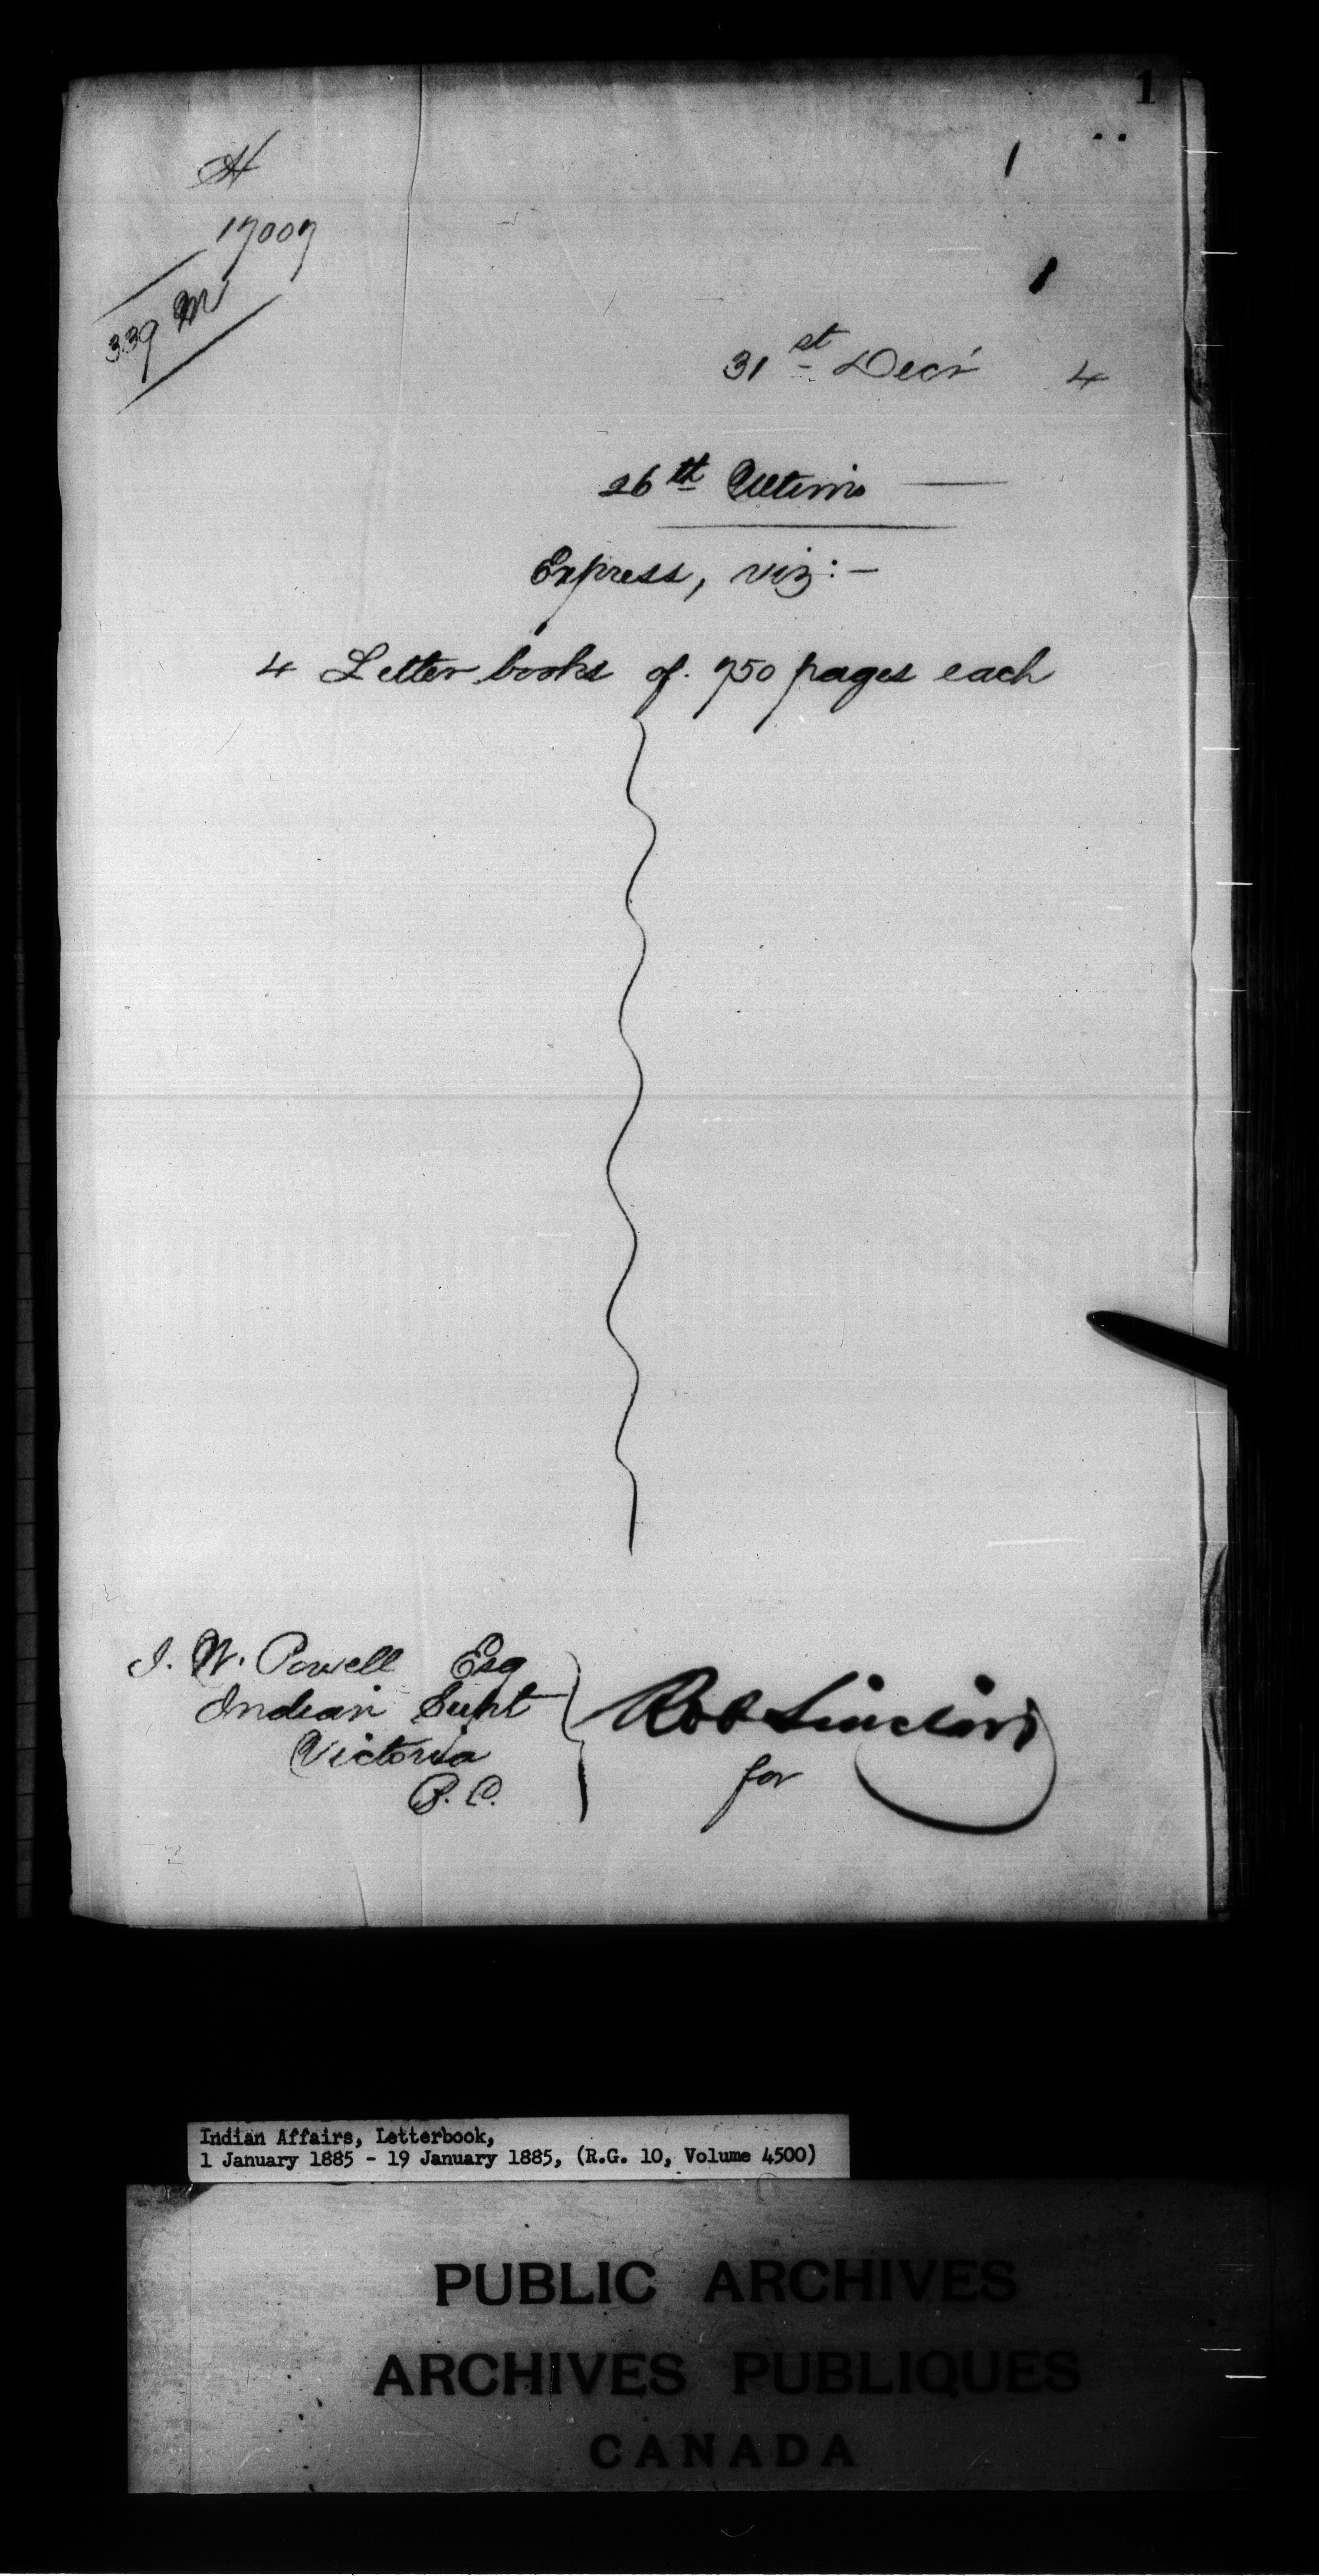 1
1
H
17007
339 M
1
31st Decr 4
26th Ultimo
Express, viz:—
4 Letter books of 750 pages each
I. W. Powell Esq
Indian Supt
Victoria
B.C.
Rob Sinclair
for
Indian Affairs, Letterbook,
1 January 1885 - 19 January 1885, (R.G. 10, Volume 4500)
PUBLIC ARCHIVES
ARCHIVES PUBLIQUES
CANADA